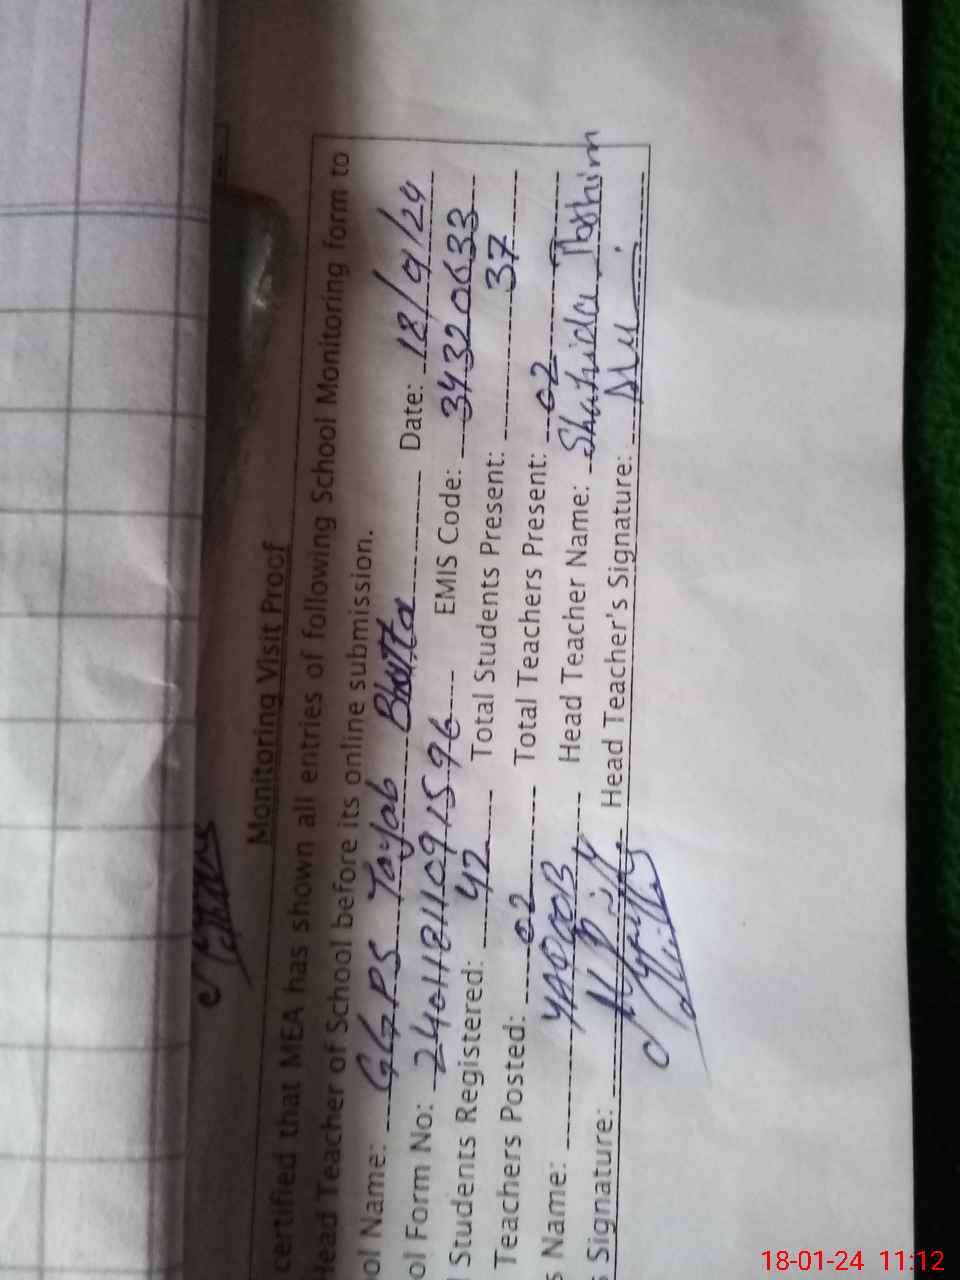 Monitoring Visit Proof
certified that MEA has shown all entries of following School Monitoring form to
Head Teacher of School before its online submission.
ol Name: GGPS Tayab Bhatta Date: 18/9/24
ol Form No: 24011811091596 EMIS Code: 34320633
l Students Registered: 42 Total Students Present: 37
Teachers Posted: 02 Total Teachers Present: 02
s Name: YAQOOB Head Teacher Name: Shahida
s Signature: Head Teacher's Signature:
18-01-24 11:12